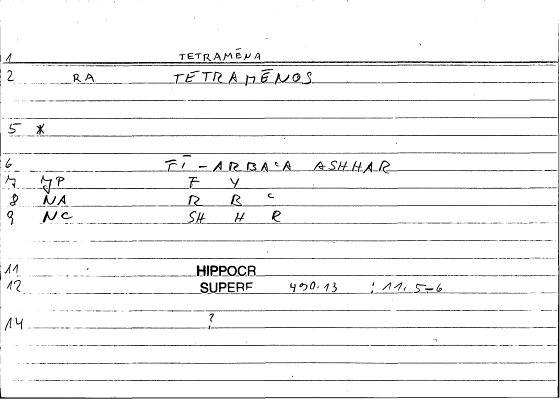 1 TETRAMĒNA
2 RA TETRAMĒNOS
5 *
6 FĪ - ARBAʿA ASHHAR
7 JP F Y
8 NA R B ʿ
9 NC SH H R
11 HIPPOCR
12 SUPERF 490.13 : 11.5-6
14 ?